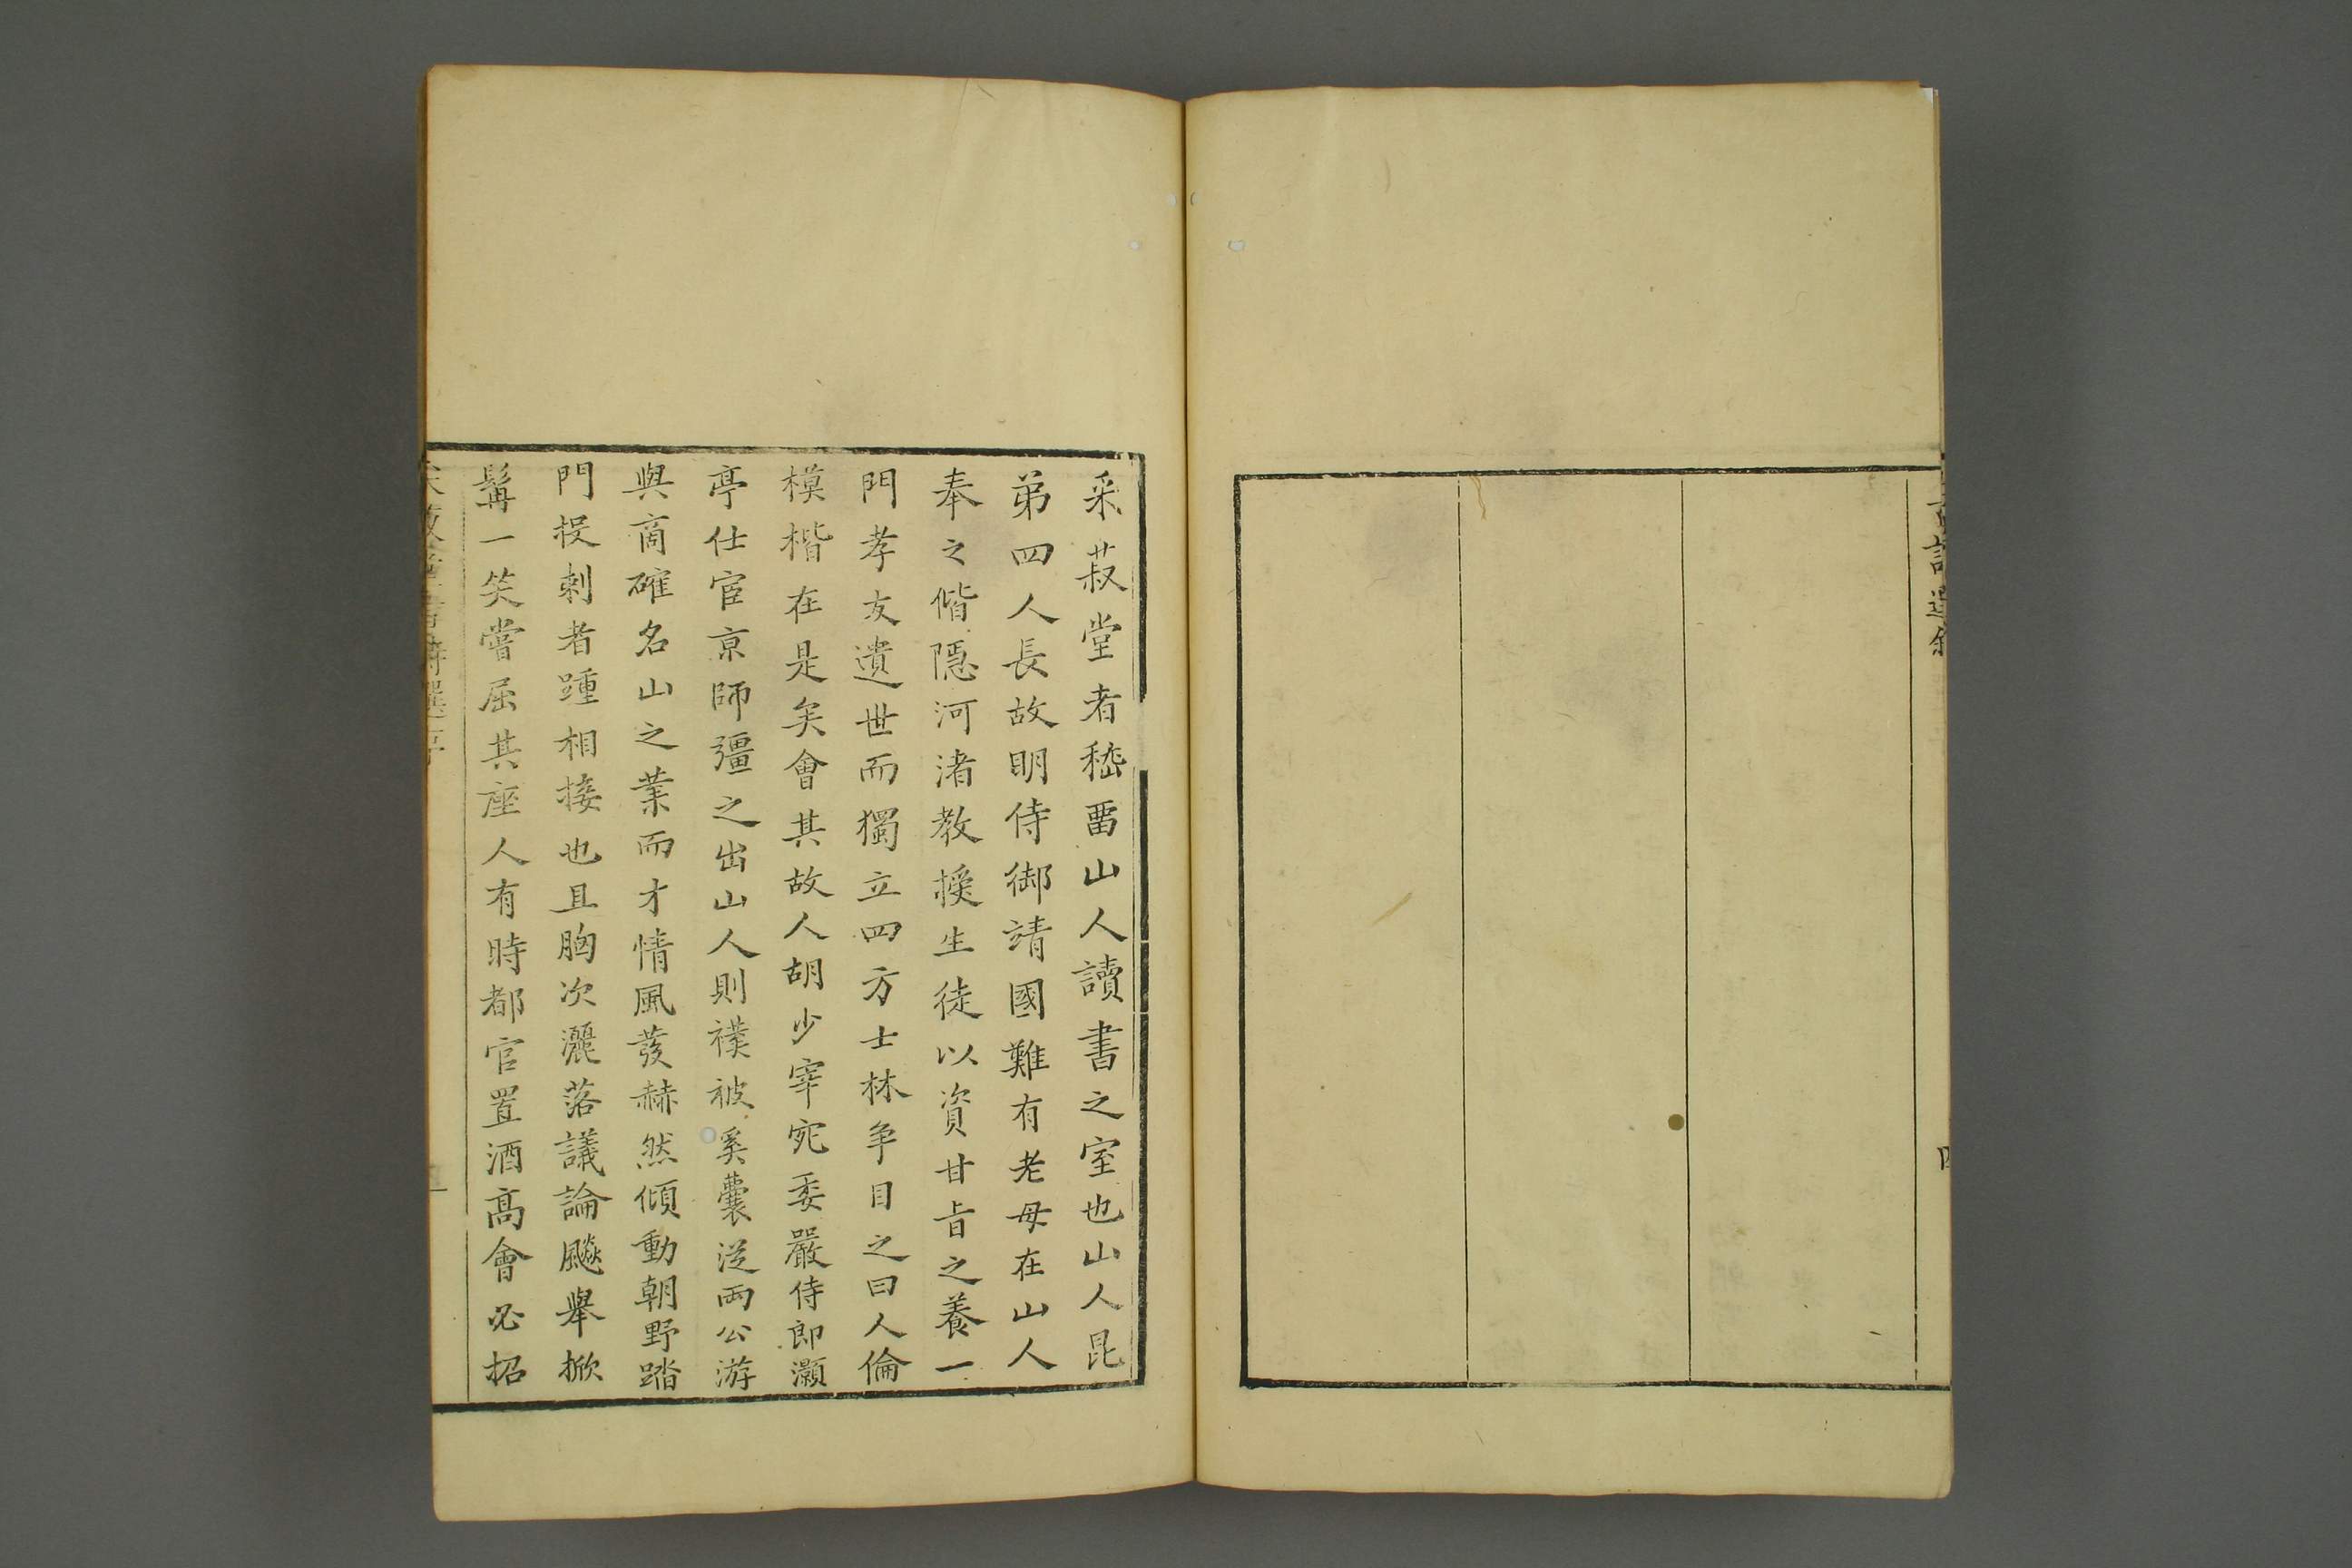 采菽堂者嵇畱山人讀書之室也山人昆
弟四人長故明侍御靖國難有老母在山人
奉之偕隱河渚教授生徒以資甘旨之養一
門孝友遺世而獨立四方士林争目之曰人倫
模楷在是矣會其故人胡少宰宛委嚴侍郎灝
亭仕宦京師彊之出山人則襆被奚囊從兩公游
與商確名山之業而才情風發赫然傾動朝野踏
門投刺者踵相接也且胸次灑落議論飈舉掀
髯一笑嘗屈其座人有時都官置酒高會必招